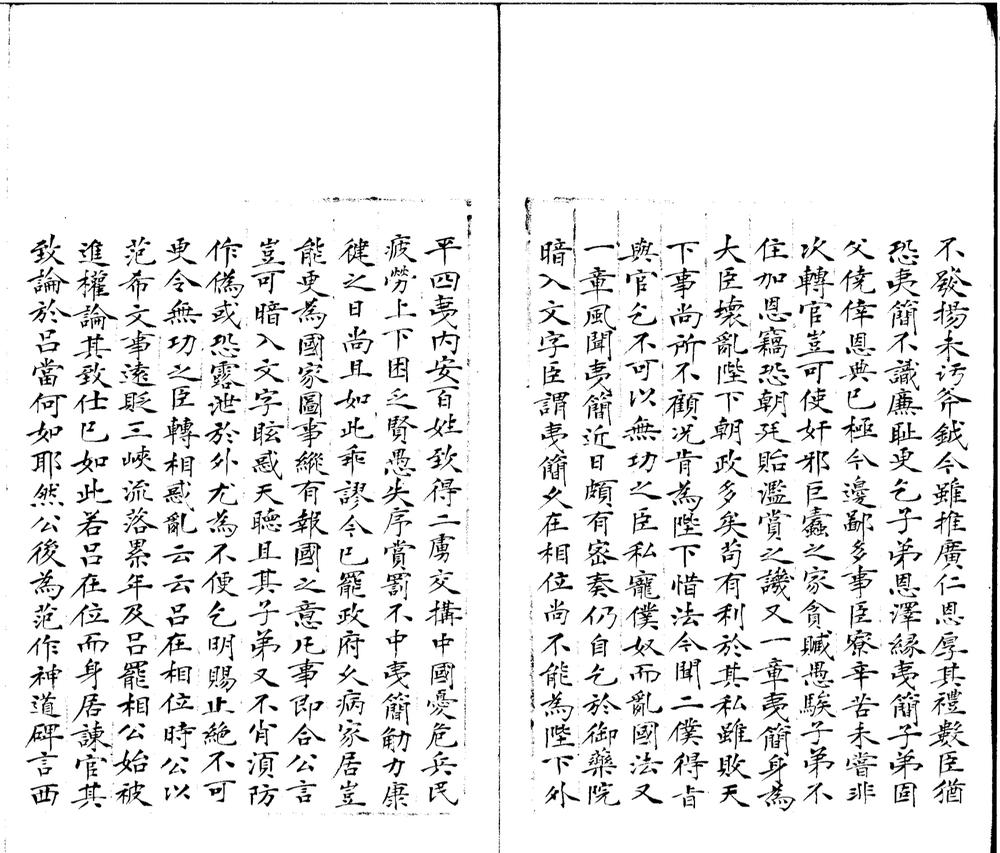 不發揚未汚斧鉞今雖推廣仁恩厚其禮數臣猶
恐夷簡不識廉耻更乞子弟恩澤縁夷簡子弟因
父僥倖恩典已極今邊鄙多事臣寮辛苦未嘗非
次轉官豈可使奸邪巨蠹之家貪贓愚騃子弟不
住加恩竊恐朝廷貽濫賞之譏又一章夷簡身為
大臣壞亂陛下朝政多矣苟有利於其私雖敗天
下事尚所不顧况肯為陛下惜法今聞二僕得旨
與官乞不可以無功之臣私寵僕奴而亂國法又
一章風聞夷簡近日頗有宻奏仍自乞於御藥院
暗入文字臣謂夷簡乆在相位尚不能為陛下外
平四夷内安百姓致得二虜交搆中國憂危兵民
疲勞上下困乏賢愚失序賞罰不中夷簡觔力康
健之日尚且如此乖謬今已罷政府乆病家居豈
能更為國家圖事縱有報國之意凡事即合公言
豈可暗入文字眩惑天聽且其子弟又不肖湏防
作偽或恐露泄於外尤為不便乞明賜止絶不可
更令無功之臣轉相惑亂云云吕在相位時公以
范希文事逺貶三峽流落累年及吕罷相公始被
進權論其致仕已如此若吕在位而身居諌官其
致論於吕當何如耶然公後為范作神道碑言西